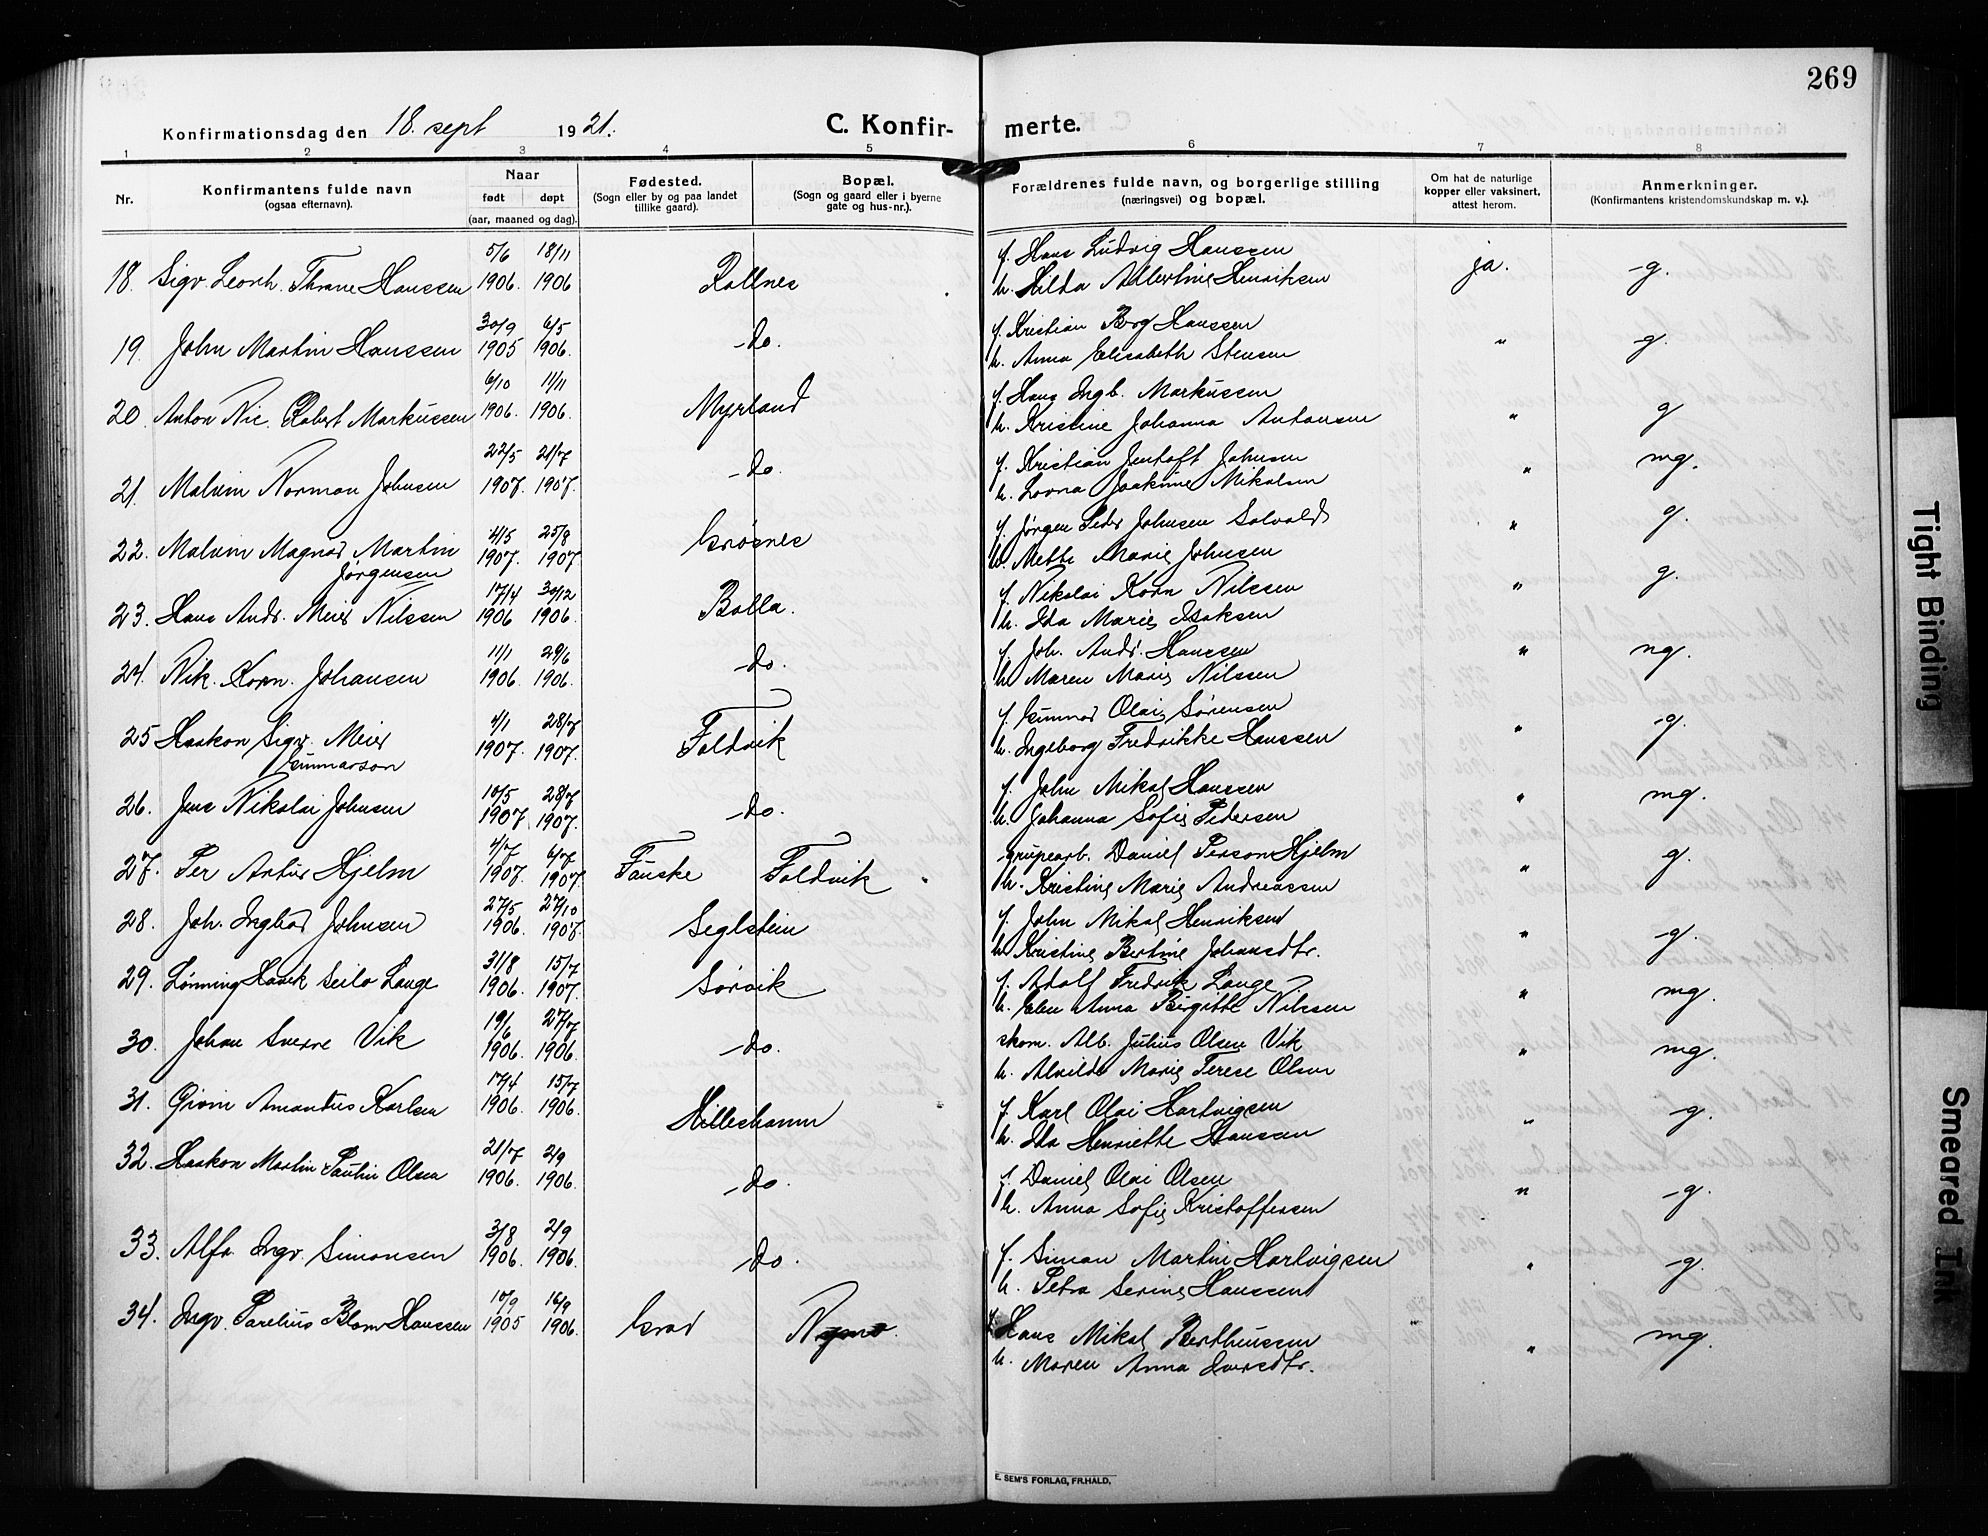 269
Konfirmationsdag den 18. sept 1921. C. Konfirmerte.
1 2 3 4 5 6 7 8
Nr.
Konfirmantens fulde navn
(ogsaa efternavn).
Naar
født døpt
(aar, maaned og dag).
Fødested.
(Sogn eller by og paa landet
tillike gaard).
Bopæl.
(Sogn og gaard eller i byerne
gate og hus-nr.).
Forældrenes fulde navn, og borgerlige stilling
(næringsvei) og bopæl.
Om hat de naturlige
kopper eller vaksinert,
attest herom.
Anmerkninger.
(Konfirmantens kristendomskundskap m. v.).
5/6 18/11 f. Hans Ludvig Hanssen
18. Sigv. Leonh. Thrane Hanssen 1906. 1906 Rollnes h. Hilda Albertine Henriksen ja. -g.
30/9 6/5 f. Kristian Borg Hanssen
19. John Martin Hanssen 1905 1906. -do. h. Anna Elisabeth Stensen " -g.
6/10 11/11 f. Hans Ingb. Markussen
20. Anton Nic. Robert Markussen 1906. 1906. Myrland h. Kristine Johanna Antonsen " g
22/5 21/7 f. Kristian Jentoft Johnsen
21. Malvin Norman Johnsen 1907. 1907. -do. h. Lovna Joakime Mikalsen " mg.
4/5 25/8 f. Jørgen Peder Johnsen Solvold
22. Malvin Magnar Martin 1907. 1907 Grøsnes h. Mette Marie Johnsen " g.
Jørgensen
17/4 30/12 f. Nikolai Korn Nilssen
23. Hans Andr. Meier Nilssen 1906 1906. Bolla. h. Ida Marie Isaksen " g.
11/1 29/6 f. Joh. Andr. Hanssen
24. Nik. Korn. Johansen 1906. 1906. -do. h. Maren Marie Nilssen " ng.
4/1 28/7 f. Gunnar Olai Sørensen
25 Haakon Sigv. Meier 1907. 1907. Foldvik h. Ingeborg Fredrikke Hanssen " -g.
Gunnarson
10/5 28/7 f. John Mikal Hanssen
26. Jens Nikolai Johnsen 1907. 1907. -do. h. Johanna Sofie Pedersen " mg.
4/7 6/7 grupearb. Daniel Person Hjelm
27. Per Artur Hjelm 1907. 1907. Fauske Foldvik h. Kristine Marie Andreassen " g.
27/5 27/10 f. John Mikal Henriksen
28. Joh. Ingbar Johnsen 1906. 1907. Seglstein h. Kristine Bertine Johansdtr. " -g.
31/8 15/7 f. Adolf Fredrik Lange
29. Lønning Havik Seilo Lange 1906. 1907. Sørvik h. Elen Anna Birgitte Nilssen " mg.
19/6 27/7 skom. Alb. Julius Olsen Vik
30. Johan Sverre Vik 1906. 1906. -do. h. Alvilde Marie Terese Olsen " mg.
17/4 15/7 f. Karl Olai Hartvigsen
31. Givin Amandus Karlsen 1906. 1906. Hilleshamn h. Ida Henriette Hanssen " -g.
21/7 2/9 f. Daniel Olai Olsen
32. Haakon Martin Paulin Olsen 1906. 1906. -do. h. Anna Sofie Kristoffersen " -g.
3/8 2/9 f. Simon Martin Hartvigsen
33. Alfr. Ingv. Simonsen 1906. 1906. -do. h. Petra Serine Hanssen " -g.
10/9 16/9 f. Hans Mikal Bertheussen
34. Ingv. Parelius Blom Hanssen 1905 1906. Grov h. Maren Anna Iversdtr. " mg.
E. SEM'S FORLAG, FR.HALD.
Tight Binding
Smeared Ink